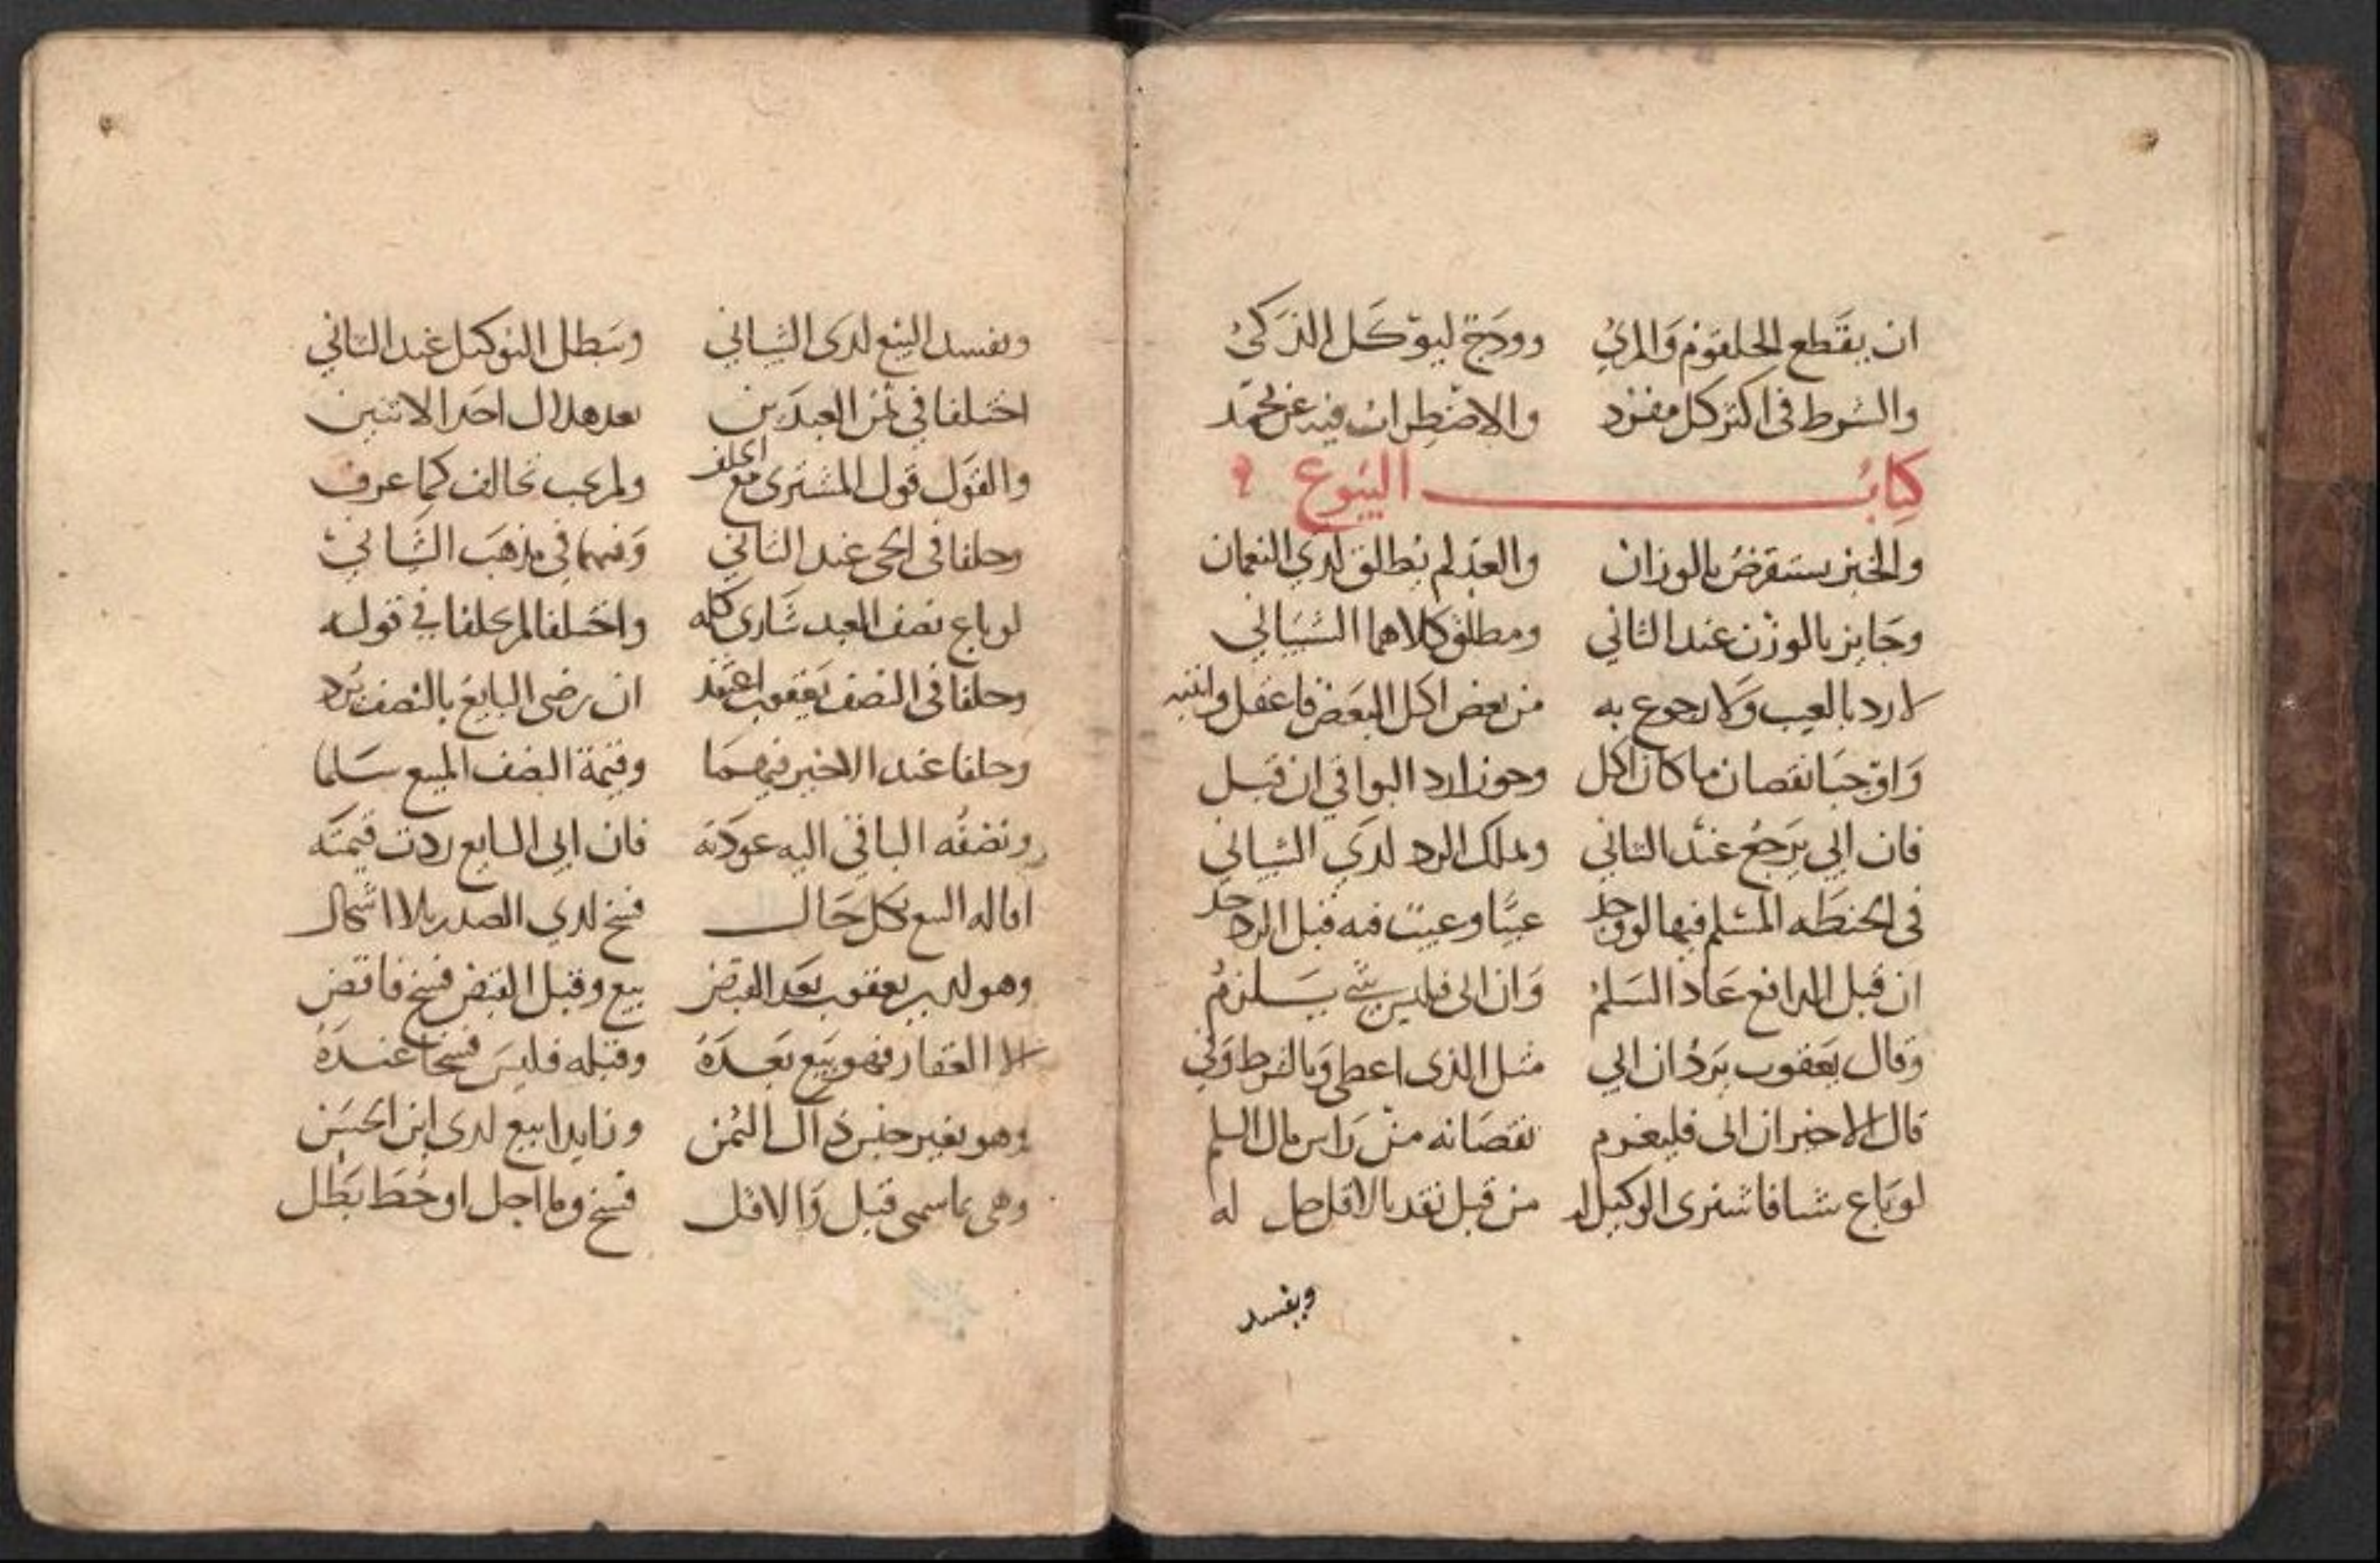 ان يقطع الحلقوم والمري وودج ليؤكل الذكي
والشرط في اكثر كل مفرد والاضطراب فيه عن محمد
كتاب البيوع
والخبز يستقرض بالوزان والعد لم يطلق لدي النعمان
وجايز بالوزن عند الثاني ومطلق كلاهما الشيباني
لا رد بالعيب ولا رجوع به من بعض اكل البعض فاعقل وانتبه
واوجبا نقصان ما كان اكل وجوزا رد البواقي ان قبل
فان ابي يرجع عند الثاني وملك الرد لدي الشيباني
في الحنطه المسلم فيها لو وجد عيبا وعيبت فيه قبل الرد حد
ان قبل الدافع عاد السلم وان ابى فليس شي يسلزم
وقال يعقوب يرد ان ابي مثل الذى اعطى وبالشرط وفي
قال الاخير ان ابى فليغرم نقصانه من راس مال السلم
لو باع شيا فاشترى الوكيل له من قبل نقد بالاقل حل له
ويفسد
ويفسد البيع لدى الشيباني ويبطل التوكيل عند الثاني
اختلفا في ثمن العبدين بعد هلاك احد الاثنين
والقول قول المشترى مع الحلف ولم يجب تحالف كما عرف
وحلفا في الحى عند الثاني وفيهما في مذهب الشيباني
لو باع نصف العبد شارى كله واختلفا لم يحلفا في قوله
وحلفا في النصف يعقوب اعتمد ان رضى البايع بالنصف يرد
وحلفا عند الاخير فيهما وقيمة النصف المبيع سلما
ونصفه الباقي اليه عودته فان ابى البايع ردت قيمته
اقاله البيع بكل حال فسخ لدي الصدر بلا اشكال
وهو لدى يعقوب بعد القبض بيع وقبل القبض فسخ فاقض
الا العقار فهو بيع بعده وقبله فليس فسخا عنده
وهو بغير جنس ذاك الثمن وزايدا بيع لدى ابن الحسن
وهى بما سمى قبل والاقل فسخ وما اجل او حط بطل